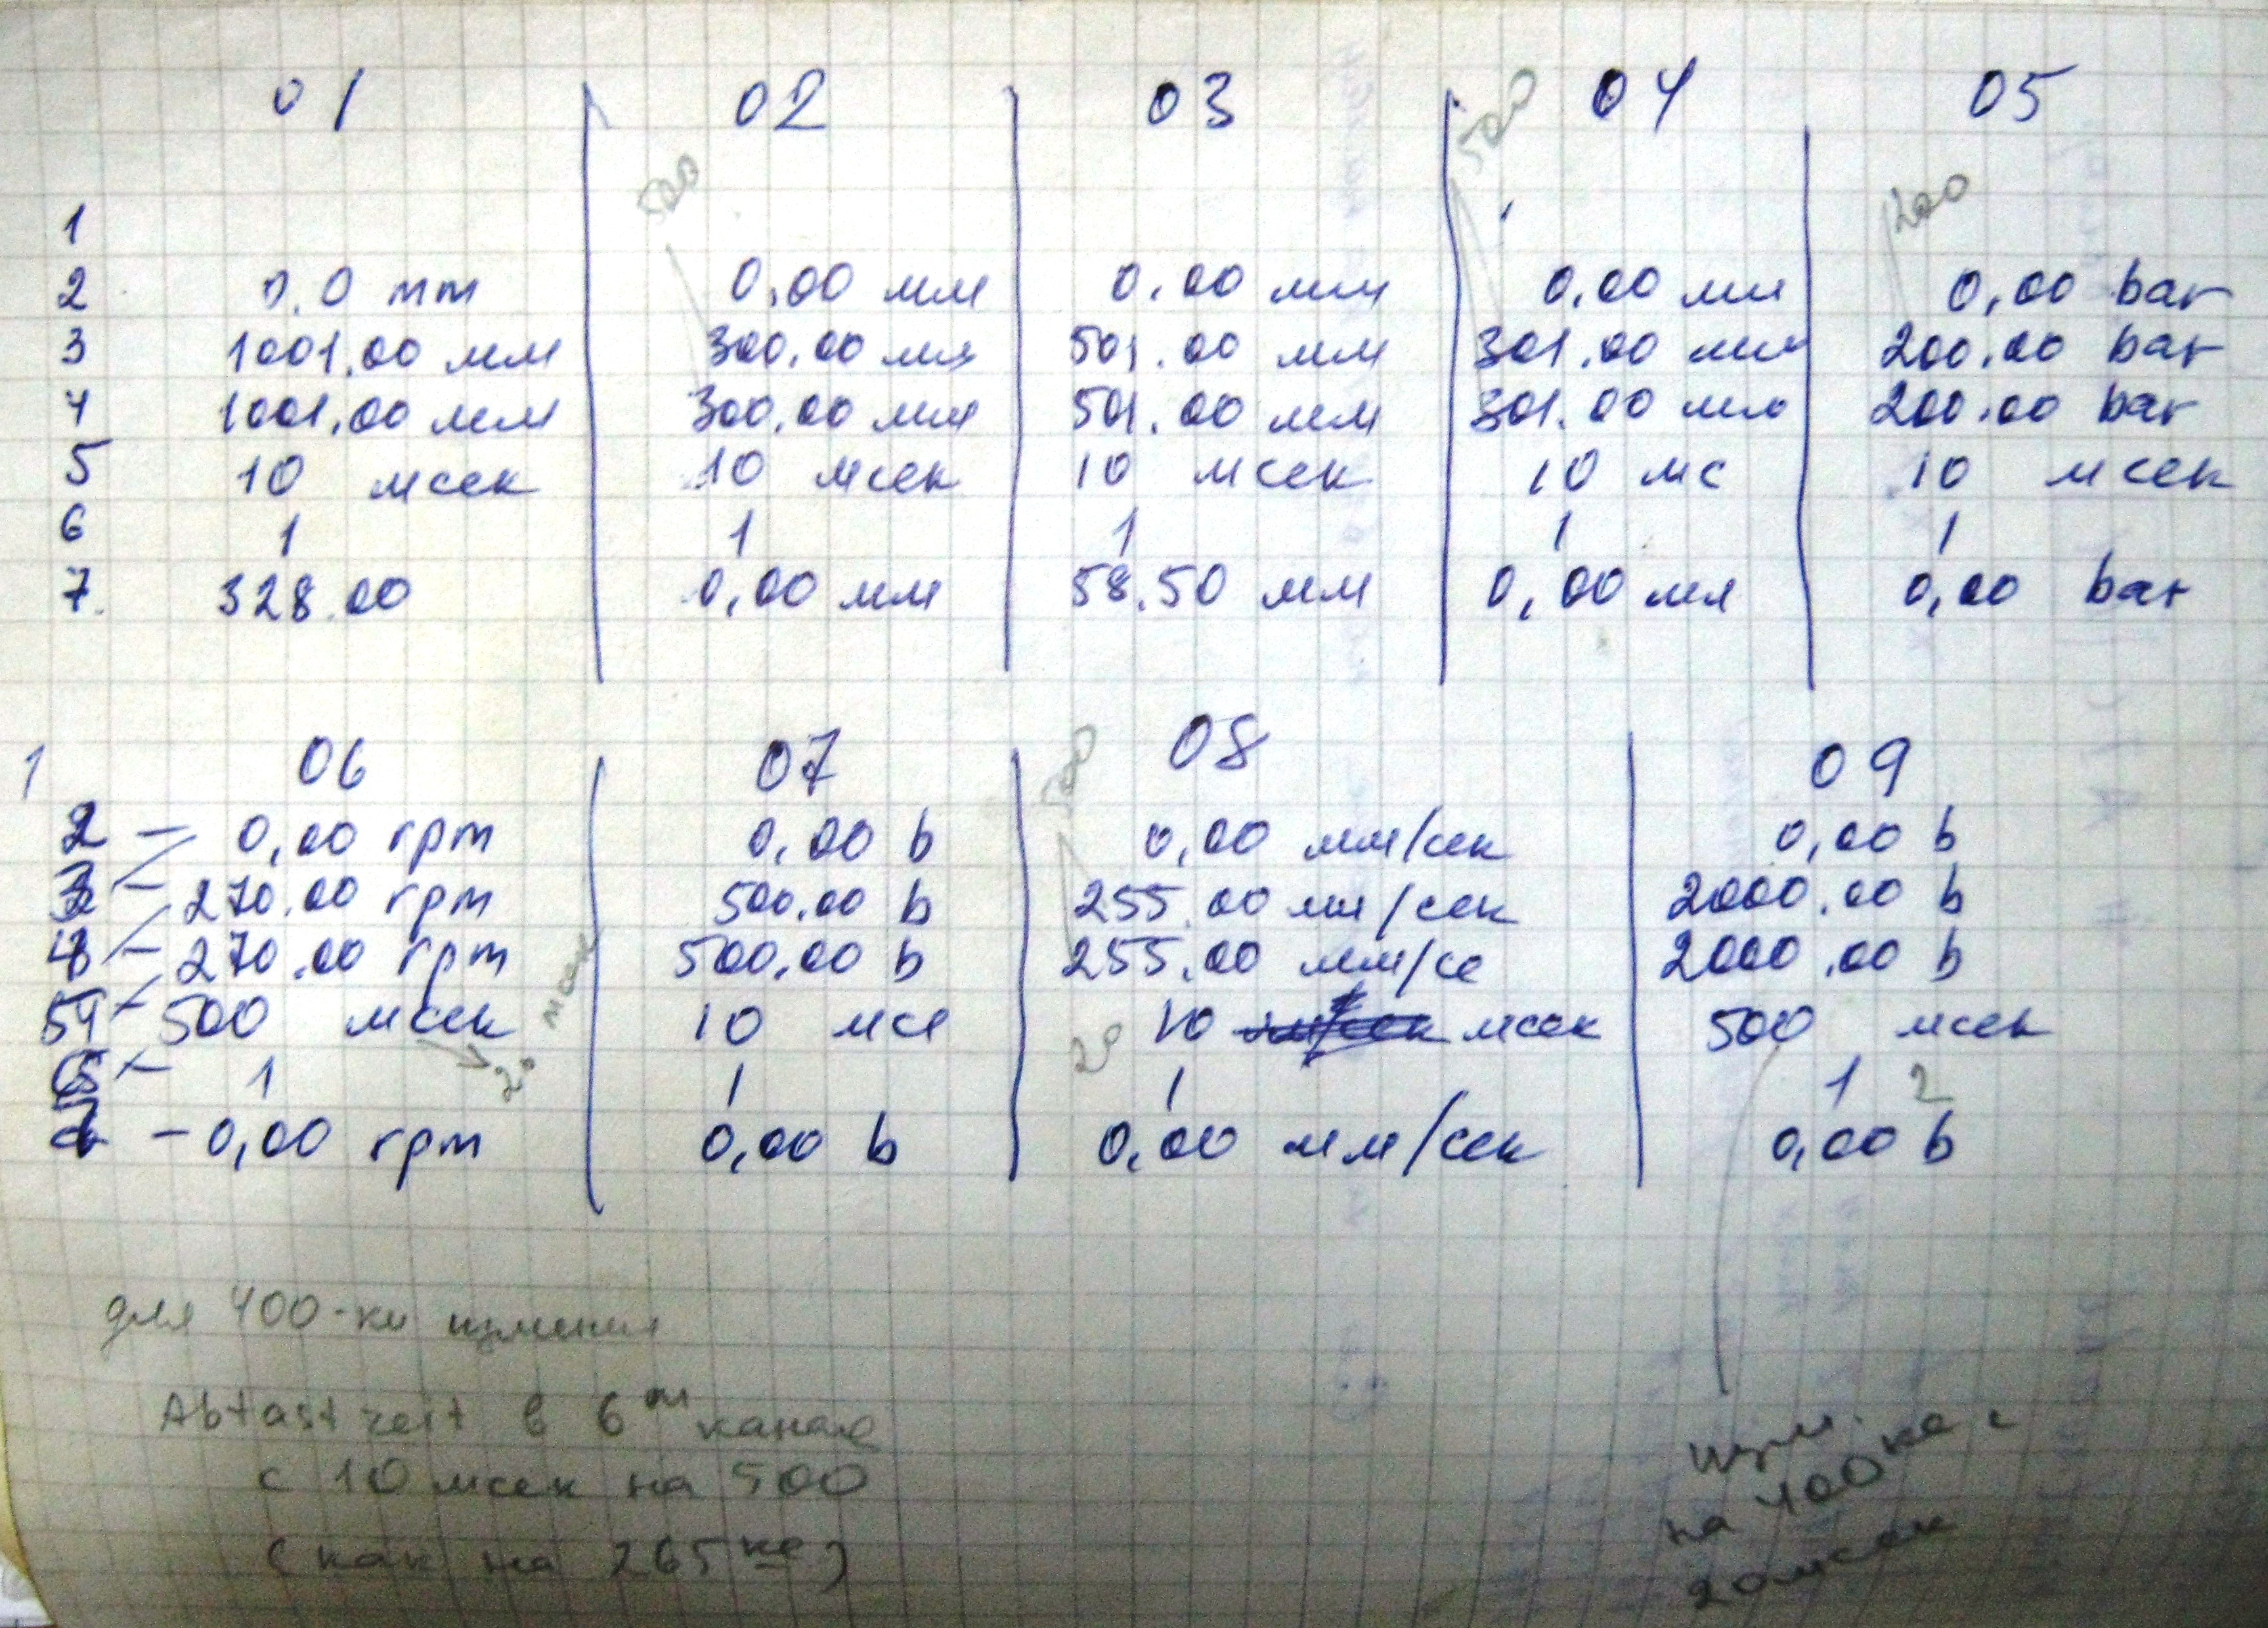 01 02 03 04 05
500 500 200
1
2 0.0 mm 0,00 мм 0,00 мм 0,00 мм 0,00 bar
3 1001,00 мм 300,00 мм 501.00 мм 301.00 мм 200.00 bar
4 1001,00 мм 300,00 мм 501.00 мм 301.00 мм 200.00 bar
5 10 мсек 10 мсек 10 мсек 10 мс 10 мсек
6 1 1 1 1 1
7. 328.00 0,00 мм 58.50 мм 0,00 мм 0,00 bar
1 06 07 08 09
500
2 - 0,00 rpm 0,00 b 0,00 мм/сек 0,00 b
3 - 270.00 rpm 500.00 b 255.00 мм/сек 2000.00 b
4 - 270.00 rpm 500.00 b 255.00 мм/се 2000.00 b
5 - 500 мсек 10 мсе 20 10 мсек 500 мсек
6 - 1 1 1 1 2
- 0,00 rpm 0,00 b 0,00 мм/сек 0,00 b
для 400-ки
Abtastzeit в 6ом канале
с 10 мсек на 500
(как на 265ке)
изм.
на 400ке с
20мсек